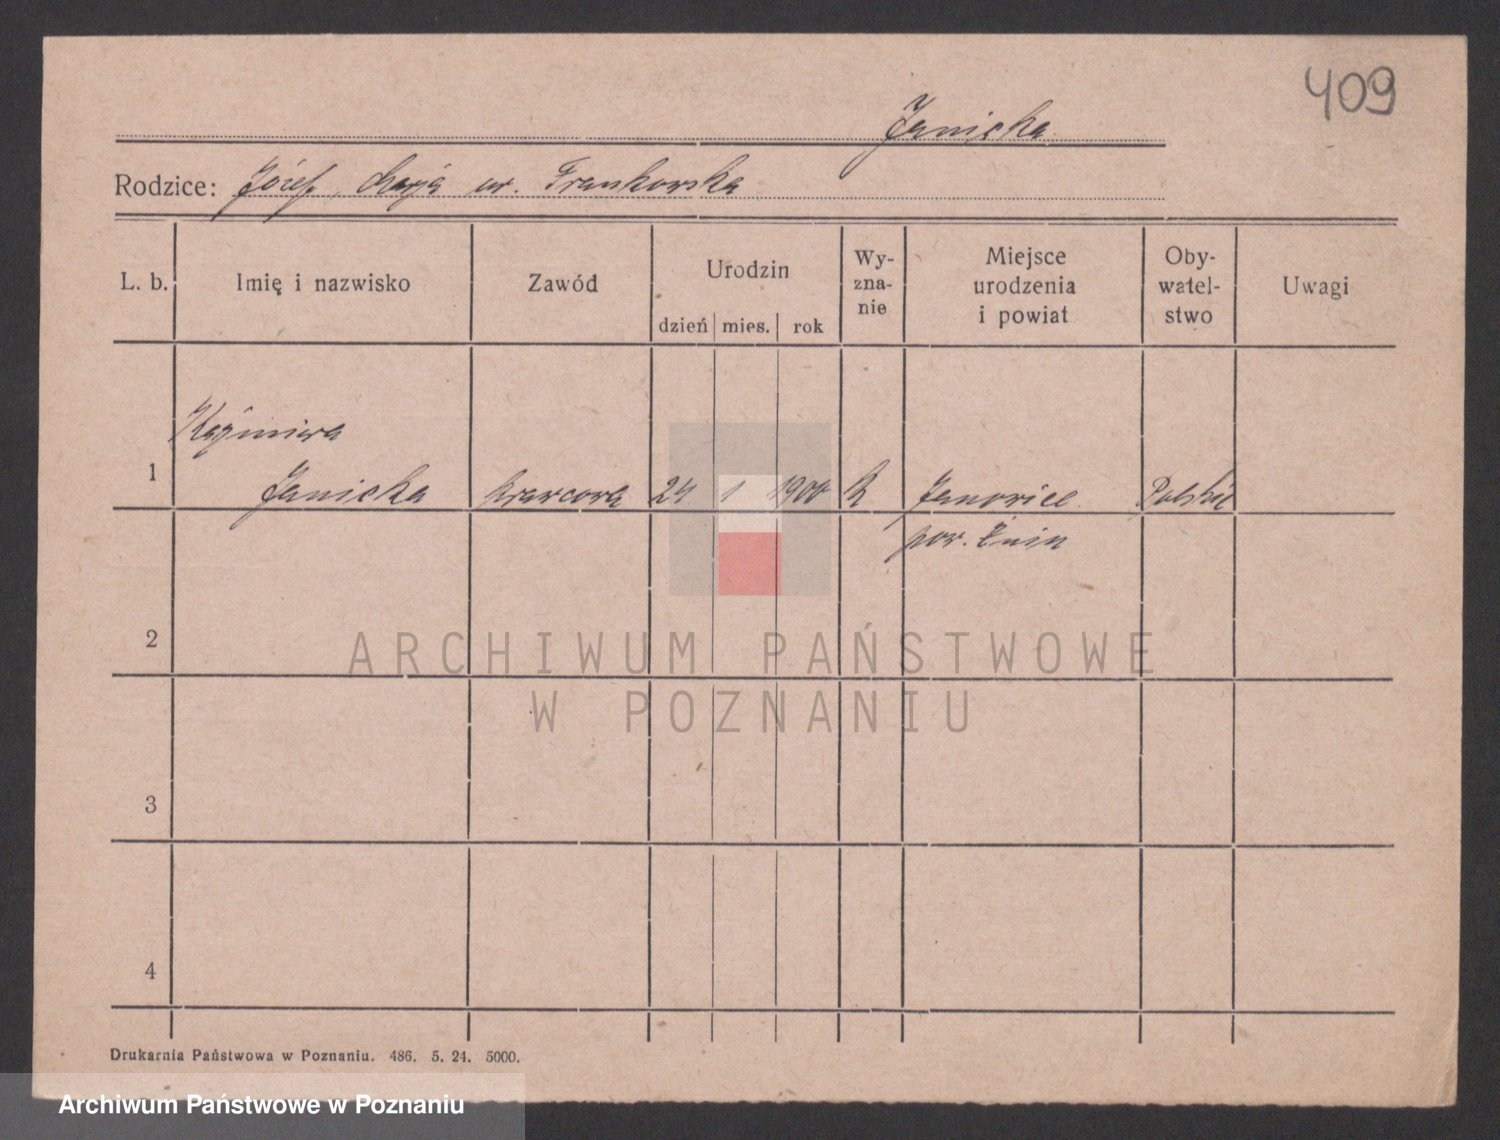 409
Janicka
Rodzice: Józef, Marja ur. Frankowska
L. b.
Imię i nazwisko
Zawód
Urodzin
dzień
mies.
rok
Wy-
zna-
nie
Miejsce
urodzenia
i powiat
Oby-
watel-
stwo
Uwagi
Kazimiera
1
Janicka
krawcowa
24
1
1900
R
Janowiec
Polskie
pow. Żnin
2
3
4
ARCHIWUM PAŃSTWOWE
W POZNANIU
Drukarnia Państwowa w Poznaniu. 486. 5. 24. 5000.
Archiwum Państwowe w Poznaniu